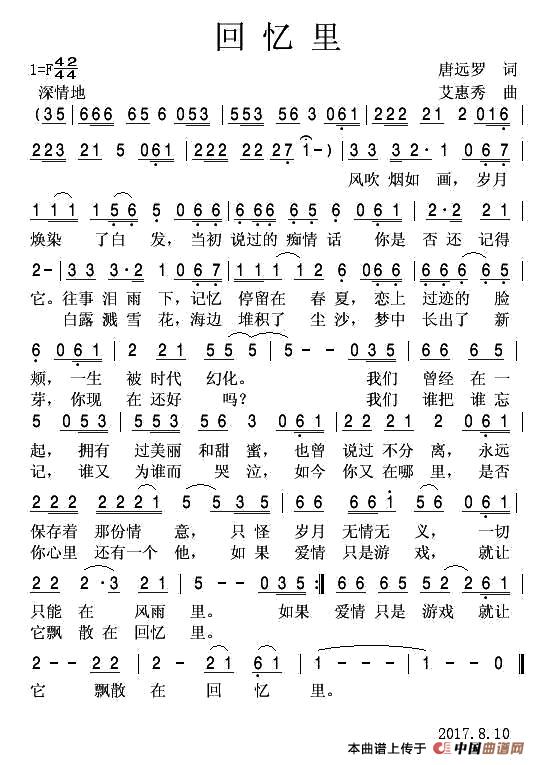 回忆里
1=F 4/4 2/4
唐远罗 词
深情地
艾惠秀 曲
(35 | 666 65 6 053 | 553 56 3 061 | 222 21 2 016 |
223 21 5 061 | 222 22·7 1-) | 33 32· 1 067 |
风吹 烟如 画， 岁月
111 156 5 066 | 666 65 6 061 | 2·2 2 21 |
焕染 了白 发， 当初 说过的 痴情 话 你是 否 还 记得
2- | 33 3·2 1 067 | 111 12 6 066 | 666 65 5 |
它。往事 泪 雨 下，记忆 停留在 春 夏，恋上 过迹的 脸
白露 溅 雪 花，海边 堆积了 尘 沙，梦中 长出了 新
6 061 | 2 2 21 | 55 52 | 5- - 035 | 66 65 5 |
颊，一生 被 时代 幻化。 我们 曾经 在 一
芽，你现 在 还好 吗？ 我们 谁把 谁 忘
5 053 | 553 55 3 061 | 222 21 2 061 |
起，拥有 过美丽 和甜 蜜，也曾 说过 不分 离，永远
记，谁又 为谁而 哭 泣，如今 你又 在哪 里，是否
222 2221 5 535 | 66 661 5 061 |
保存着 那份情 意，只 怪 岁月 无情无 义， 一切
你心里 还有一个 他，如 果 爱情 只是游 戏，就让
22 2·3 21 | 5- - 035 :| 66 65 52 261 |
只能 在 风雨 里。 如果 爱情 只是 游戏 就让
它飘 散在 回忆 里。
2- - 22 | 2- - 21 | 61 1- | 1--- | 1--0 ‖
它 飘散 在 回 忆 里。
2017.8.10
本曲谱上传于 中国曲谱网